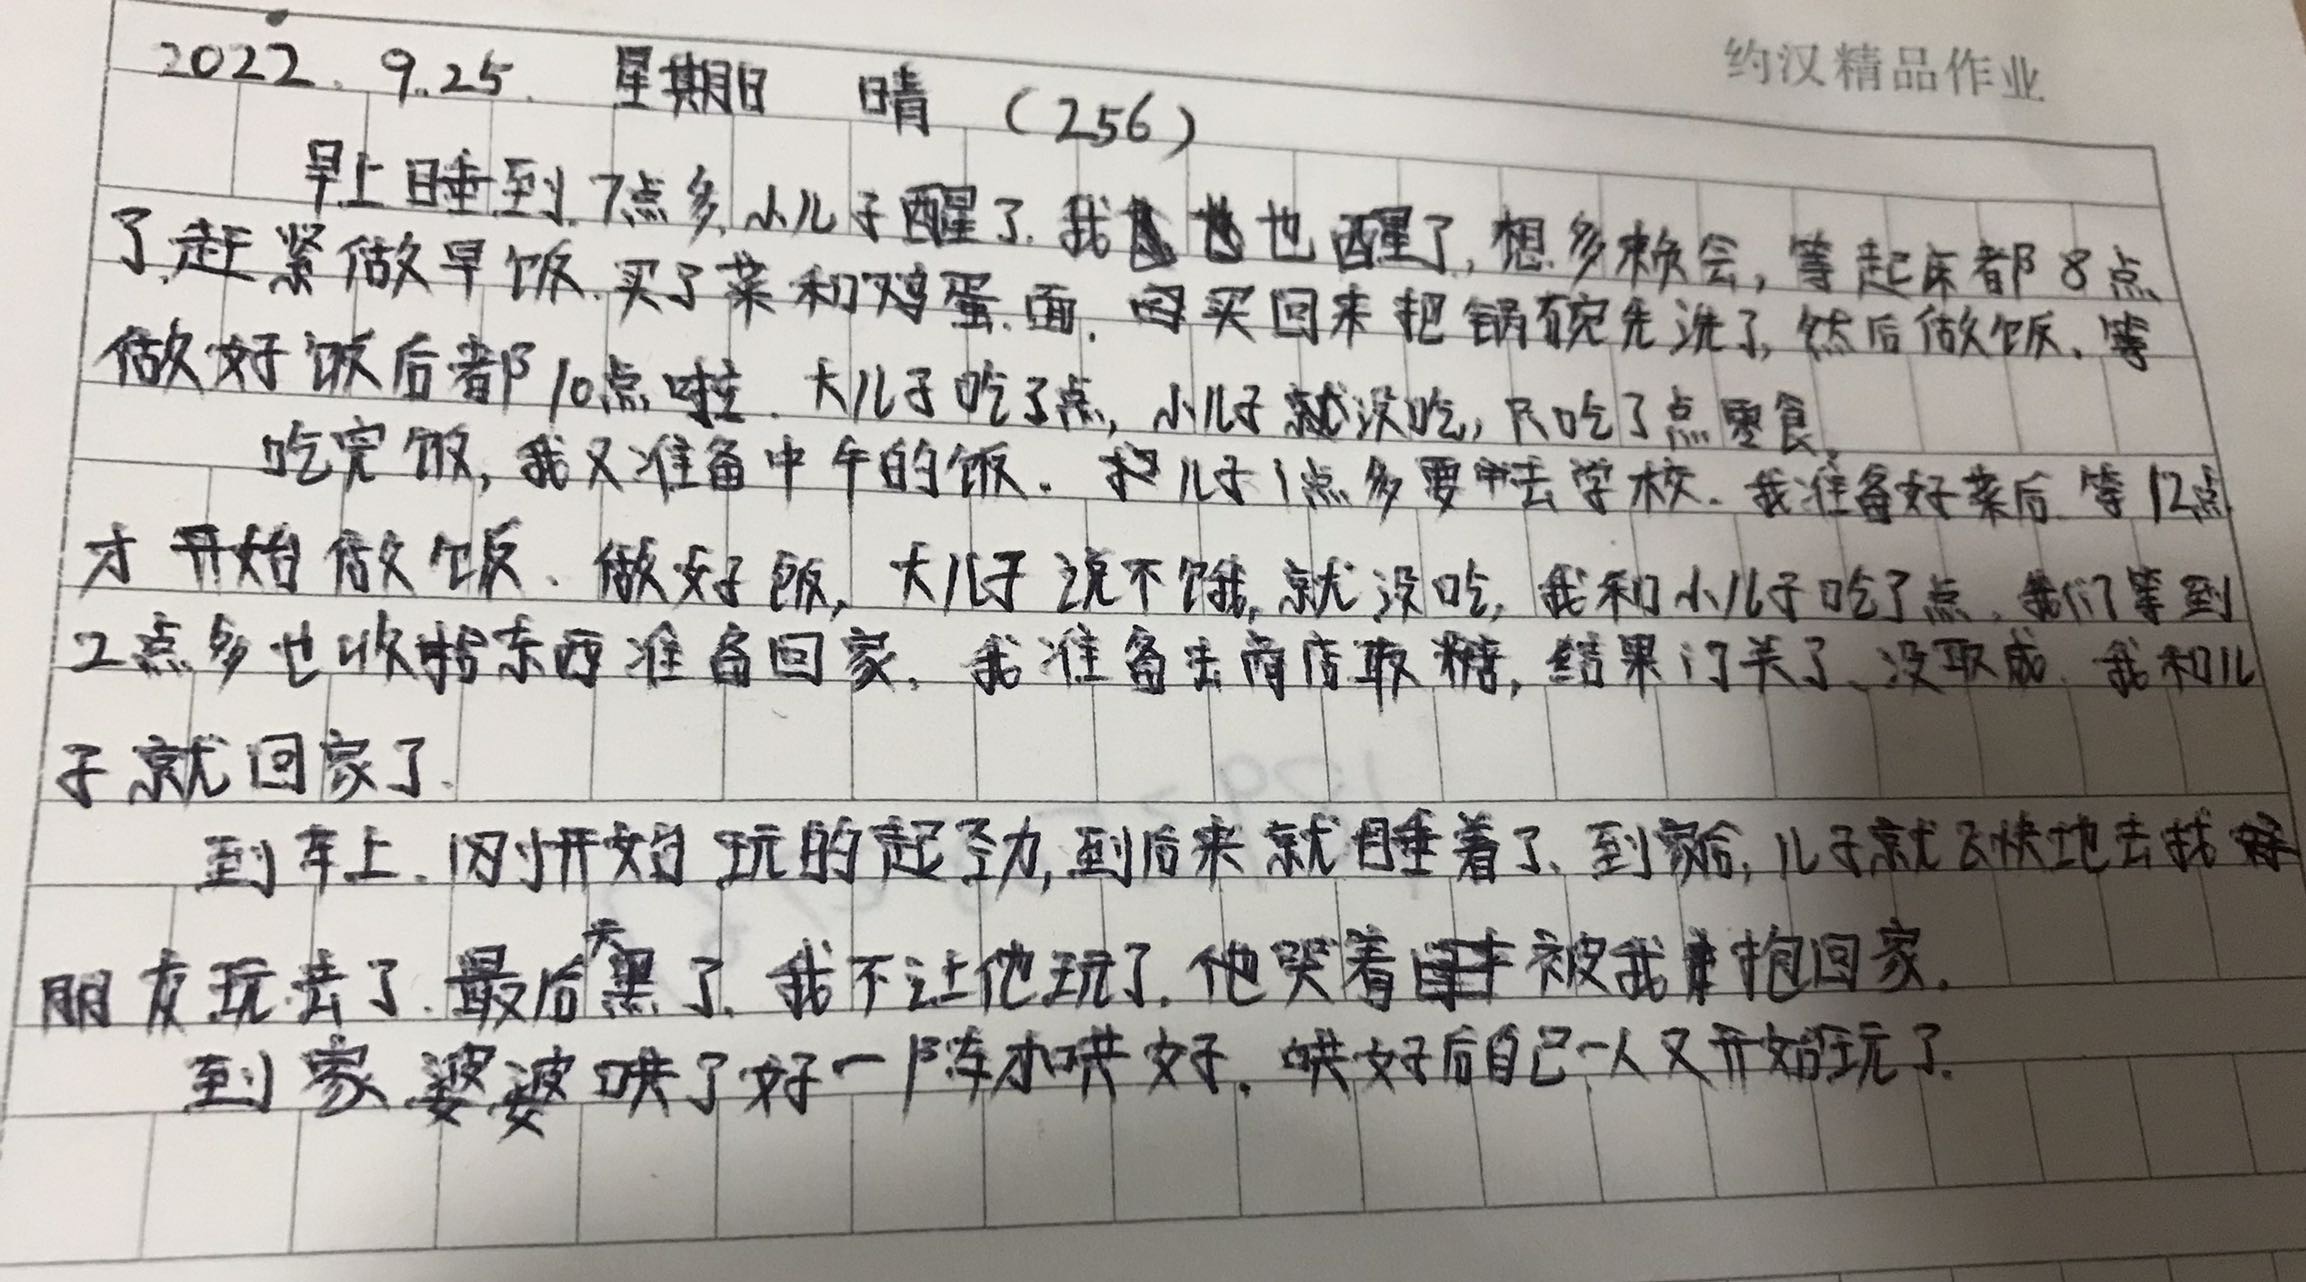 约汉精品作业
2022.9.25. 星期日 晴 (256)
早上睡到7点多,小儿子醒了.我也醒了,想多赖会,等起床都8点
了,赶紧做早饭.买了菜和鸡蛋.面.买回来把锅碗先洗了,然后做饭.等
做好饭后都10点啦.大儿子吃了点,小儿子就没吃,只吃了点零食.
吃完饭,我又准备中午的饭.儿子1点多要去学校.我准备好菜后.等12点
才开始做饭.做好饭,大儿子说不饿,就没吃,我和小儿子吃了点.我们等到
2点多也收拾东西准备回家.我准备去商店取糖,结果门关了、没取成.我和儿
子就回家了.
到车上.刚开始玩的起劲,到后来就睡着了.到家后,儿子就飞快地去找好
朋友玩去了.最后天黑了.我不让他玩了.他哭着被我抱回家.
到家婆婆哄了好一阵才哄好.哄好后自己一人又开始玩了.